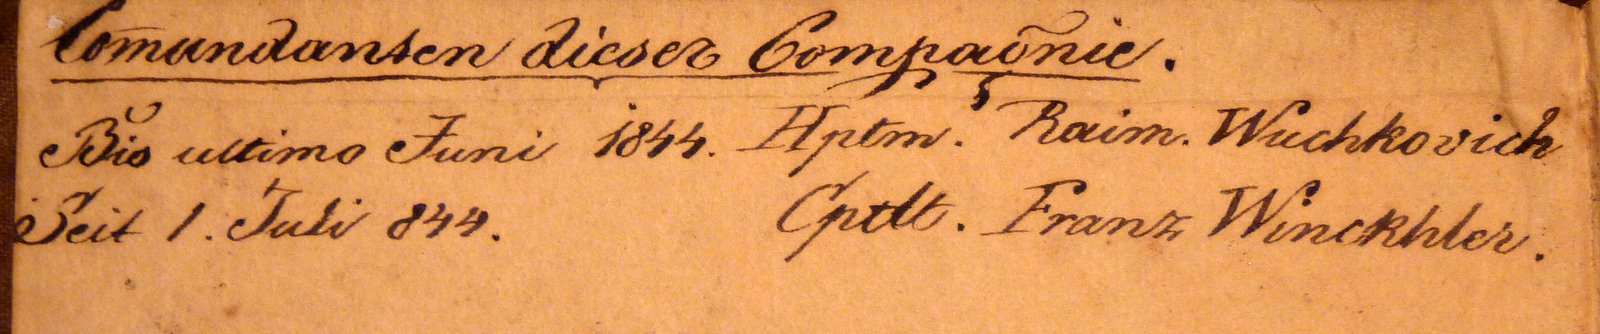 Com̄andanten dieser Compagnie.
Bis ultimo Juni 1844. Hptm. Raim. Wuchkovich
Seit 1. Juli 844. Cptlt. Franz Winckhler.